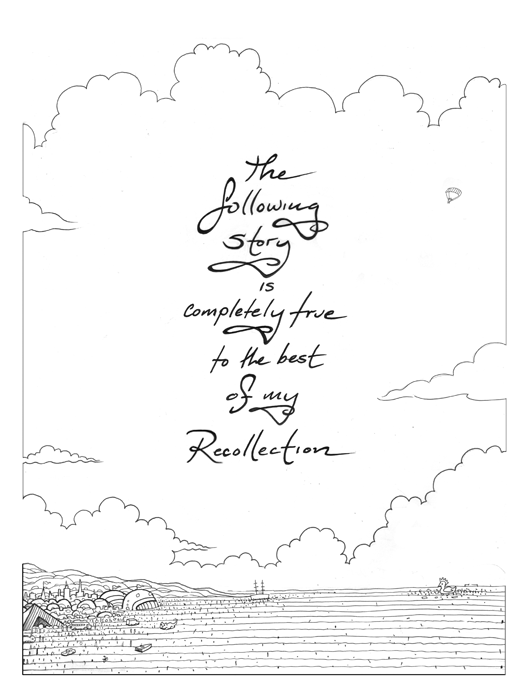 The
following
story
is
completely true
to the best
of my
Recollection